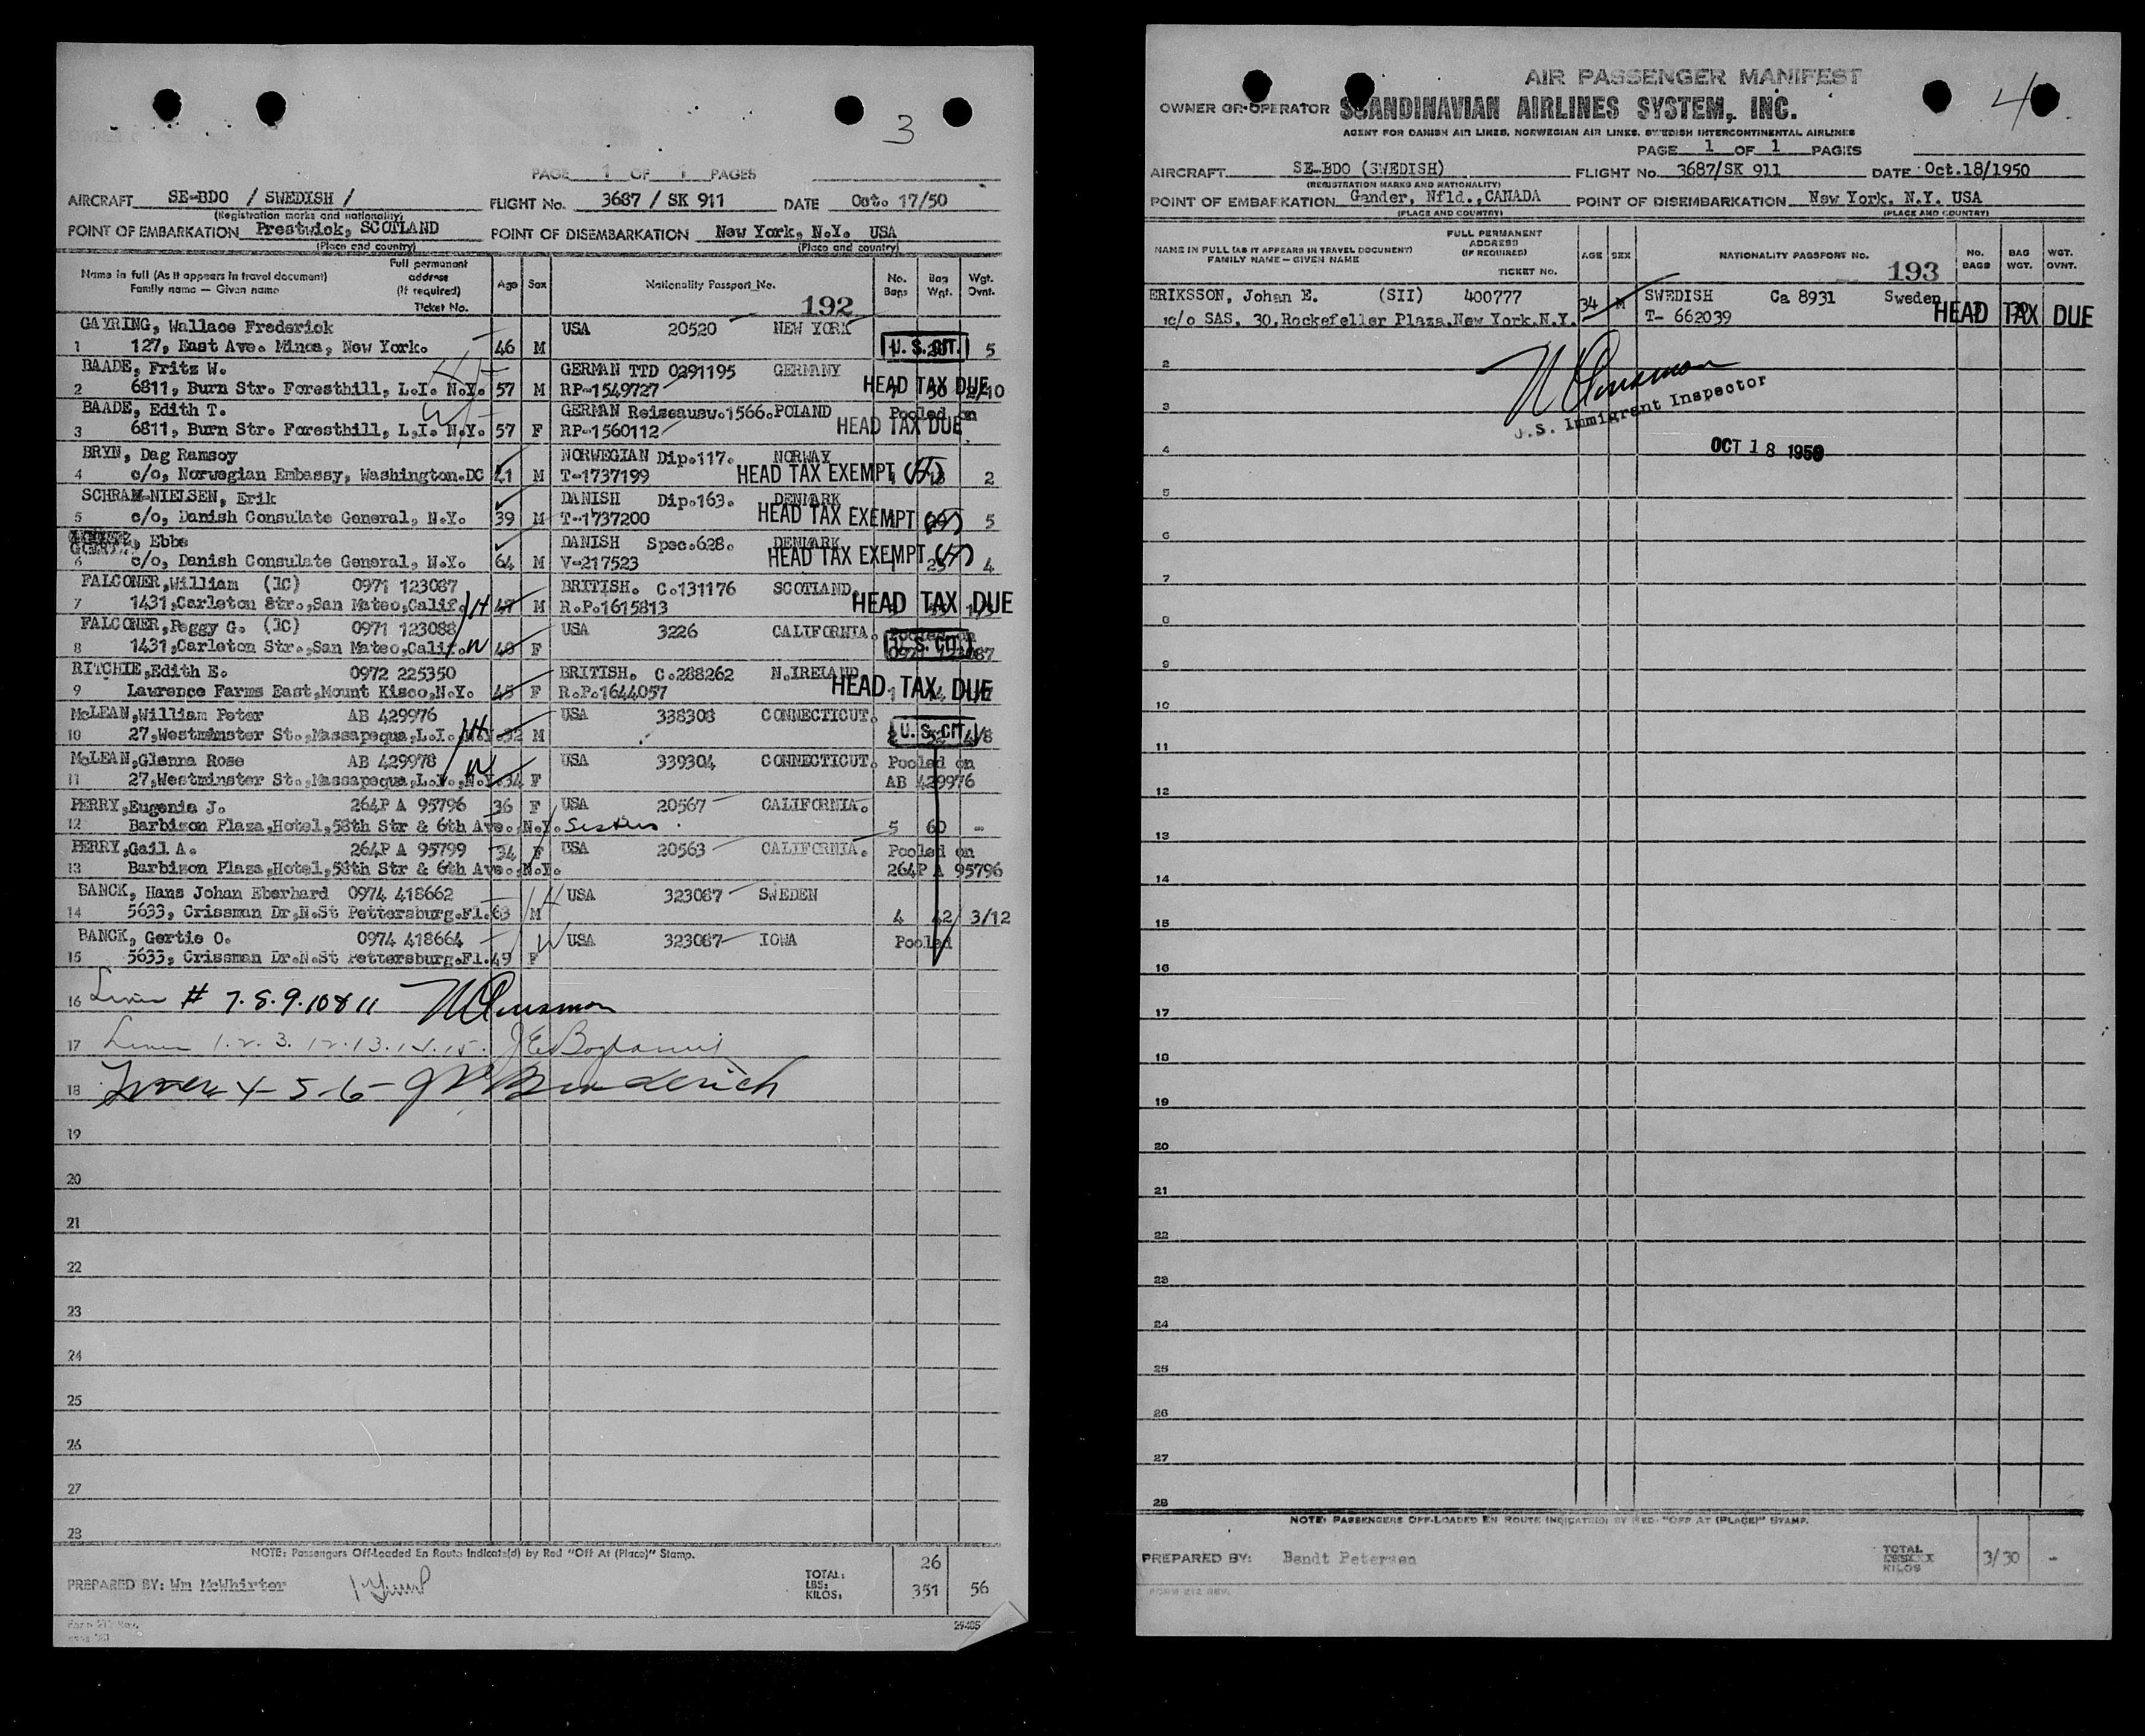 3
PAGE 1 OF 1 PAGES
AIRCRAFT SE-BDO / SWEDISH / FLIGHT No. 3687 / SK 911 DATE Oct. 17/50
(Registration marks and nationality)
POINT OF EMBARKATION Prestwick, SCOTLAND POINT OF DISEMBARKATION New York, N.Y. USA
(Place and country) (Place and country)
Name in full (As it appears in travel document) Family name — Given name Full permanent address (If required) Ticket No. Age Sex Nationality Passport No. 192 No. Bags Bag Wgt. Wgt. Ovnt.
GAYRING, Wallace Frederick USA 20520 NEW YORK
1 127, East Ave. Minea, New York. 46 M U. S. CIT. 5
BAADE, Fritz W. GERMAN TTD 0291195 GERMANY
2 6811, Burn Str. Foresthill, L.I. N.Y. 57 M RP-1549727 HEAD TAX DUE
BAADE, Edith T. GERMAN Reiseausw.1566.POLAND Pooled on
3 6811, Burn Str. Foresthill, L.I. N.Y. 57 F RP-1560112 HEAD TAX DUE
BRYN, Dag Ramsoy NORWEGIAN Dip.117. NORWAY
4 c/o, Norwegian Embassy, Washington.DC 21 M T-1737199 HEAD TAX EXEMPT 2
SCHRAM-NIELSEN, Erik DANISH Dip.163. DENMARK
5 c/o, Danish Consulate General, N.Y. 39 M T-1737200 HEAD TAX EXEMPT 5
, Ebbe DANISH Spec.628. DENMARK
6 c/o, Danish Consulate General, N.Y. 64 M V-217523 HEAD TAX EXEMPT 4
FALCONER,William (IC) 0971 123087 BRITISH. C.131176 SCOTLAND.
7 1431,Carleton Str.,San Mateo,Calif. H 47 M R.P.1615813 HEAD TAX DUE
FALCONER,Peggy G. (IC) 0971 123088 USA 3226 CALIFORNIA. Pooled on
8 1431,Carleton Str.,San Mateo,Calif. W 40 F U. S. CIT. 0971 123087
RITCHIE,Edith E. 0972 225350 BRITISH. C.288262 N.IRELAND.
9 Lawrence Farms East,Mount Kisco,N.Y. 45 F R.P.1644057 HEAD TAX DUE
McLEAN,William Peter AB 429976 USA 338308 CONNECTICUT.
10 27,Westminster St.,Massapequa,L.I. N.Y. 32 M U. S. CIT.
McLEAN,Glenna Rose AB 429978 USA 339304 CONNECTICUT. Pooled on
11 27,Westminster St.,Massapequa,L.I.,N.Y. 34 F AB 429976
PERRY,Eugenia J. 264P A 95796 36 F USA 20567 CALIFORNIA.
12 Barbizon Plaza,Hotel,58th Str & 6th Ave.,N.Y. Sisters. 5 60 -
PERRY,Gail A. 264P A 95799 34 F USA 20563 CALIFORNIA. Pooled on
13 Barbizon Plaza,Hotel,58th Str & 6th Ave.,N.Y. 264P A 95796
BANCK, Hans Johan Eberhard 0974 418662 H USA 323087 SWEDEN
14 5633, Crissman Dr,N.St Pettersburg.Fl. 63 M 4 42 3/12
BANCK, Gertie O. 0974 418664 W USA 323087 IOWA Pooled
15 5633, Crissman Dr.N.St Pettersburg.Fl. 49 F
16 Lines # 7. 8. 9. 10 & 11
17 Lines 1. 2. 3. 12. 13. 14. 15.
18 Lines 4-5-6-
19
20
21
22
23
24
25
26
27
28
NOTE: Passengers Off-Loaded En Route Indicate(d) by Red "Off At (Place)" Stamp.
PREPARED BY: Wm McWhirter TOTAL: LBS: KILOS: 26 351 56
AIR PASSENGER MANIFEST
4
OWNER OR OPERATOR SCANDINAVIAN AIRLINES SYSTEM, INC.
AGENT FOR DANISH AIR LINES, NORWEGIAN AIR LINES, SWEDISH INTERCONTINENTAL AIRLINES
PAGE 1 OF 1 PAGES
AIRCRAFT SE-BDO (SWEDISH) FLIGHT No. 3687/SK 911 DATE Oct.18/1950
(REGISTRATION MARKS AND NATIONALITY)
POINT OF EMBARKATION Gander, Nfld.,CANADA POINT OF DISEMBARKATION New York, N.Y. USA
(PLACE AND COUNTRY) (PLACE AND COUNTRY)
NAME IN FULL (AS IT APPEARS IN TRAVEL DOCUMENT) FAMILY NAME — GIVEN NAME FULL PERMANENT ADDRESS (IF REQUIRED) TICKET No. AGE SEX NATIONALITY PASSPORT No. 193 No. BAGS BAG WGT. WGT. OVNT.
ERIKSSON, Johan E. (SII) 400777 34 M SWEDISH Ca 8931 Sweden
c/o SAS, 30,Rockefeller Plaza,New York,N.Y. T- 662039 HEAD TAX DUE
2
3
U.S. Immigrant Inspector
4
OCT 18 1950
5
6
7
8
9
10
11
12
13
14
15
16
17
18
19
20
21
22
23
24
25
26
27
28
NOTE: PASSENGERS OFF-LOADED EN ROUTE INDICATE(D) BY RED "OFF AT (PLACE)" STAMP.
PREPARED BY: Bendt Petersen TOTAL KILOS 3/30 -
FORM 212 REV.